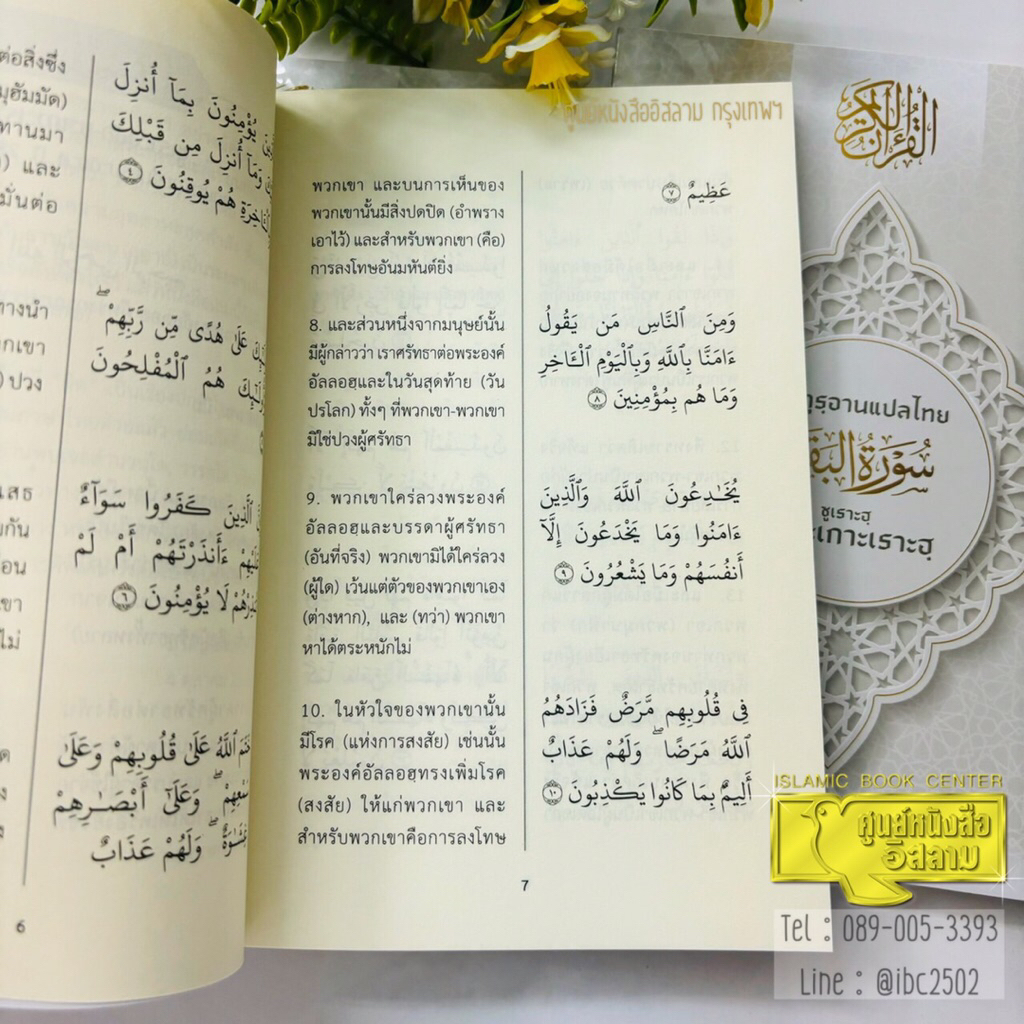 ต่อสิ่งซึ่ง
มุฮัมมัด)
ทานมา
และ
มั่นต่อ
ทางนำ
ปวง
يُؤْمِنُونَ بِمَآ أُنزِلَ
وَمَآ أُنزِلَ مِن قَبْلِكَ
هُمْ يُوقِنُونَ ٤
عَلَىٰ هُدًى مِّن رَّبِّهِمْ ۖ
هُمُ ٱلْمُفْلِحُونَ
ٱلَّذِينَ كَفَرُوا۟ سَوَآءٌ
ءَأَنذَرْتَهُمْ أَمْ لَمْ
لَا يُؤْمِنُونَ ٦
ٱللَّهُ عَلَىٰ قُلُوبِهِمْ وَعَلَىٰ
وَعَلَىٰٓ أَبْصَـٰرِهِمْ
وَلَهُمْ عَذَابٌ
6
ศูนย์หนังสืออิสลาม กรุงเทพฯ
พวกเขา และบนการเห็นของ
พวกเขานั้นมีสิ่งปดปิด (อำพราง
เอาไว้) และสำหรับพวกเขา (คือ)
การลงโทษอันมหันต์ยิ่ง
عَظِيمٌ ٧
8. และส่วนหนึ่งจากมนุษย์นั้น
มีผู้กล่าวว่า เราศรัทธาต่อพระองค์
อัลลอฮฺและในวันสุดท้าย (วัน
ปรโลก) ทั้งๆ ที่พวกเขา-พวกเขา
มิใช่ปวงผู้ศรัทธา
وَمِنَ ٱلنَّاسِ مَن يَقُولُ
ءَامَنَّا بِٱللَّهِ وَبِٱلْيَوْمِ ٱلْـَٔاخِرِ
وَمَا هُم بِمُؤْمِنِينَ ٨
9. พวกเขาใคร่ลวงพระองค์
อัลลอฮฺและบรรดาผู้ศรัทธา
(อันที่จริง) พวกเขามิได้ใคร่ลวง
(ผู้ใด) เว้นแต่ตัวของพวกเขาเอง
(ต่างหาก), และ (ทว่า) พวกเขา
หาได้ตระหนักไม่
يُخَـٰدِعُونَ ٱللَّهَ وَٱلَّذِينَ
ءَامَنُوا۟ وَمَا يَخْدَعُونَ إِلَّآ
أَنفُسَهُمْ وَمَا يَشْعُرُونَ ٩
10. ในหัวใจของพวกเขานั้น
มีโรค (แห่งการสงสัย) เช่นนั้น
พระองค์อัลลอฮฺทรงเพิ่มโรค
(สงสัย) ให้แก่พวกเขา และ
สำหรับพวกเขาคือการลงโทษ
فِى قُلُوبِهِم مَّرَضٌ فَزَادَهُمُ
ٱللَّهُ مَرَضًا ۖ وَلَهُمْ عَذَابٌ
أَلِيمٌۢ بِمَا كَانُوا۟ يَكْذِبُونَ ١٠
7
القرآن الكريم
กุรฺอานแปลไทย
سُورَةُ
ซูเราะฮฺ
ISLAMIC BOOK CENTER
ศูนย์หนังสือ
อิสลาม
Tel : 089-005-3393
Line : @ibc2502